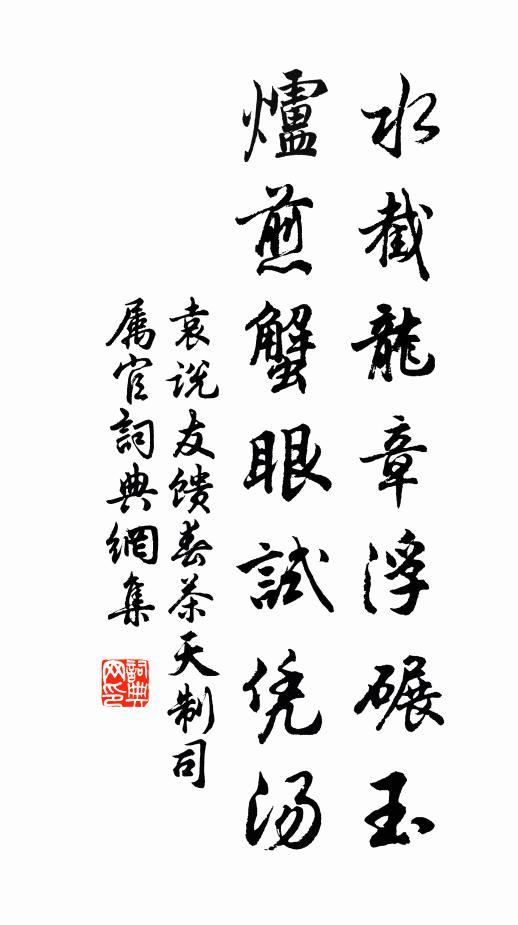 水截龍章浮碾玉
爐煎蟹眼試凭汤
袁说友馈春茶天制司
属官詞典網集
詞典网印